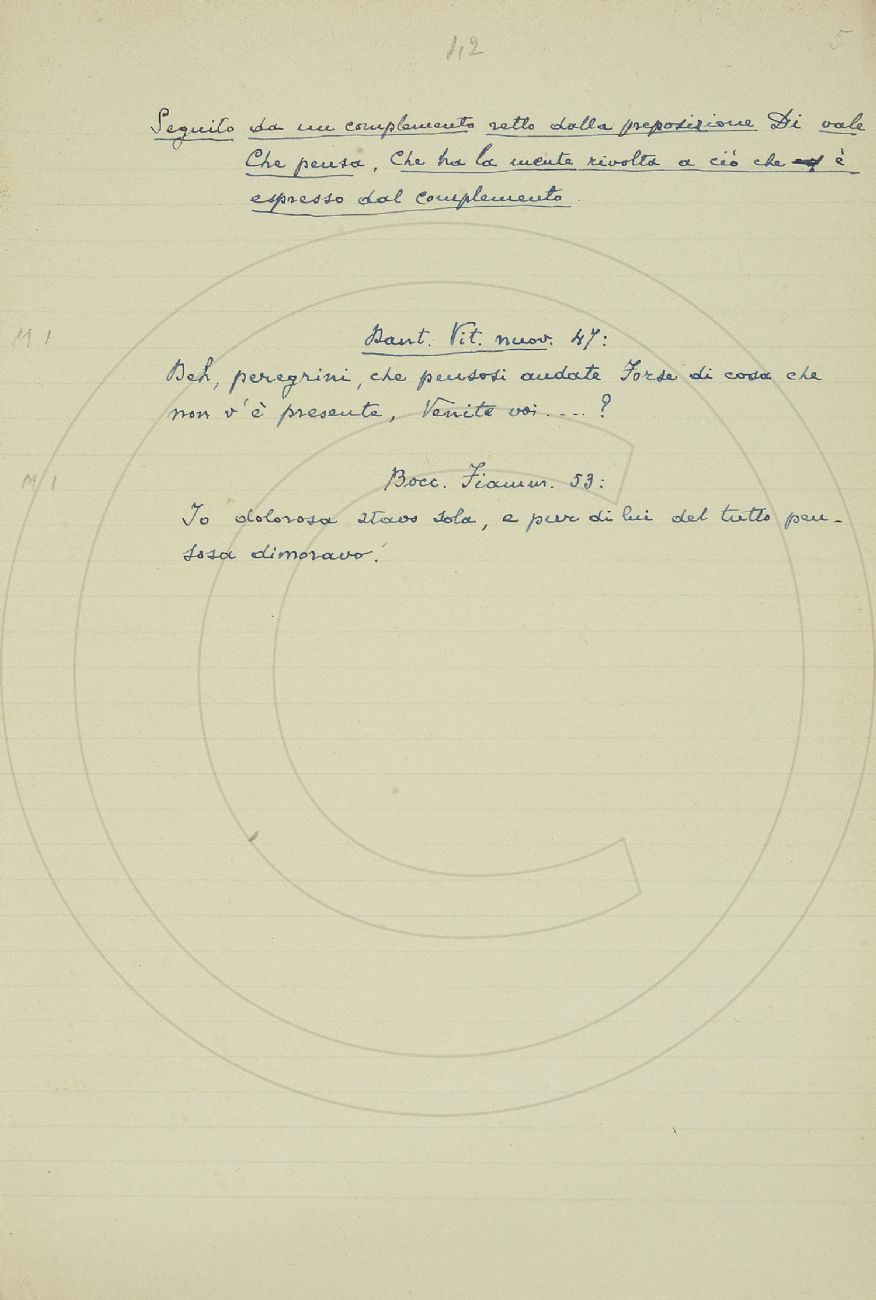 1,2
5
Seguito da un complemento retto dalla preposizione Di vale
Che pensa, Che ha la mente rivolta a ciò che è
espresso dal complemento.
M 1
Dant. Vit. nuov. 47:
Deh, peregrini, che pensosi andate Forse di cosa che
non v'è presente, Venite voi....?
M 1
Bocc. Fiamm. 53:
Io dolorosa stavo sola, e pur di lui del tutto pen-
sosa dimoravo.